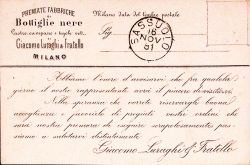 PREMIATE FABBRICHE
di
Bottiglie nere
Giacomo Luraghi & Fratello
MILANO
Milano Data del timbro postale
Sig.
SASSUOLO
18
NOV
81
Abbiamo l'onore d'avvisarvi che fra qualche
giorno il nostro rappresentante avrà il piacere di visitarvi.
Nella speranza che vorrete riservargli buona
accoglienza e favorirlo di pregiati vostri ordini che
sarà nostra premura di eseguire scrupolosamente passiamo
a salutarvi distintamente.
Giacomo Luraghi & Fratello